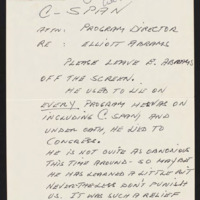 C-SPAN
ATTN: PROGRAM DIRECTOR
RE: ELLIOTT ABRAMS
PLEASE LEAVE E. ABRAMS
OFF THE SCREEN.
HE USED TO LIE ON
EVERY PROGRAM HE WAS ON
INCLUDING C SPAN, AND
UNDER OATH, HE LIED TO
CONGRESS.
HE IS NOT QUITE AS
THIS TIME AROUND - SO MAYBE
HE HAS LEARNED A LITTLE BUT
NEVERTHELESS DON'T PUNISH
US. IT WAS SUCH A RELIEF